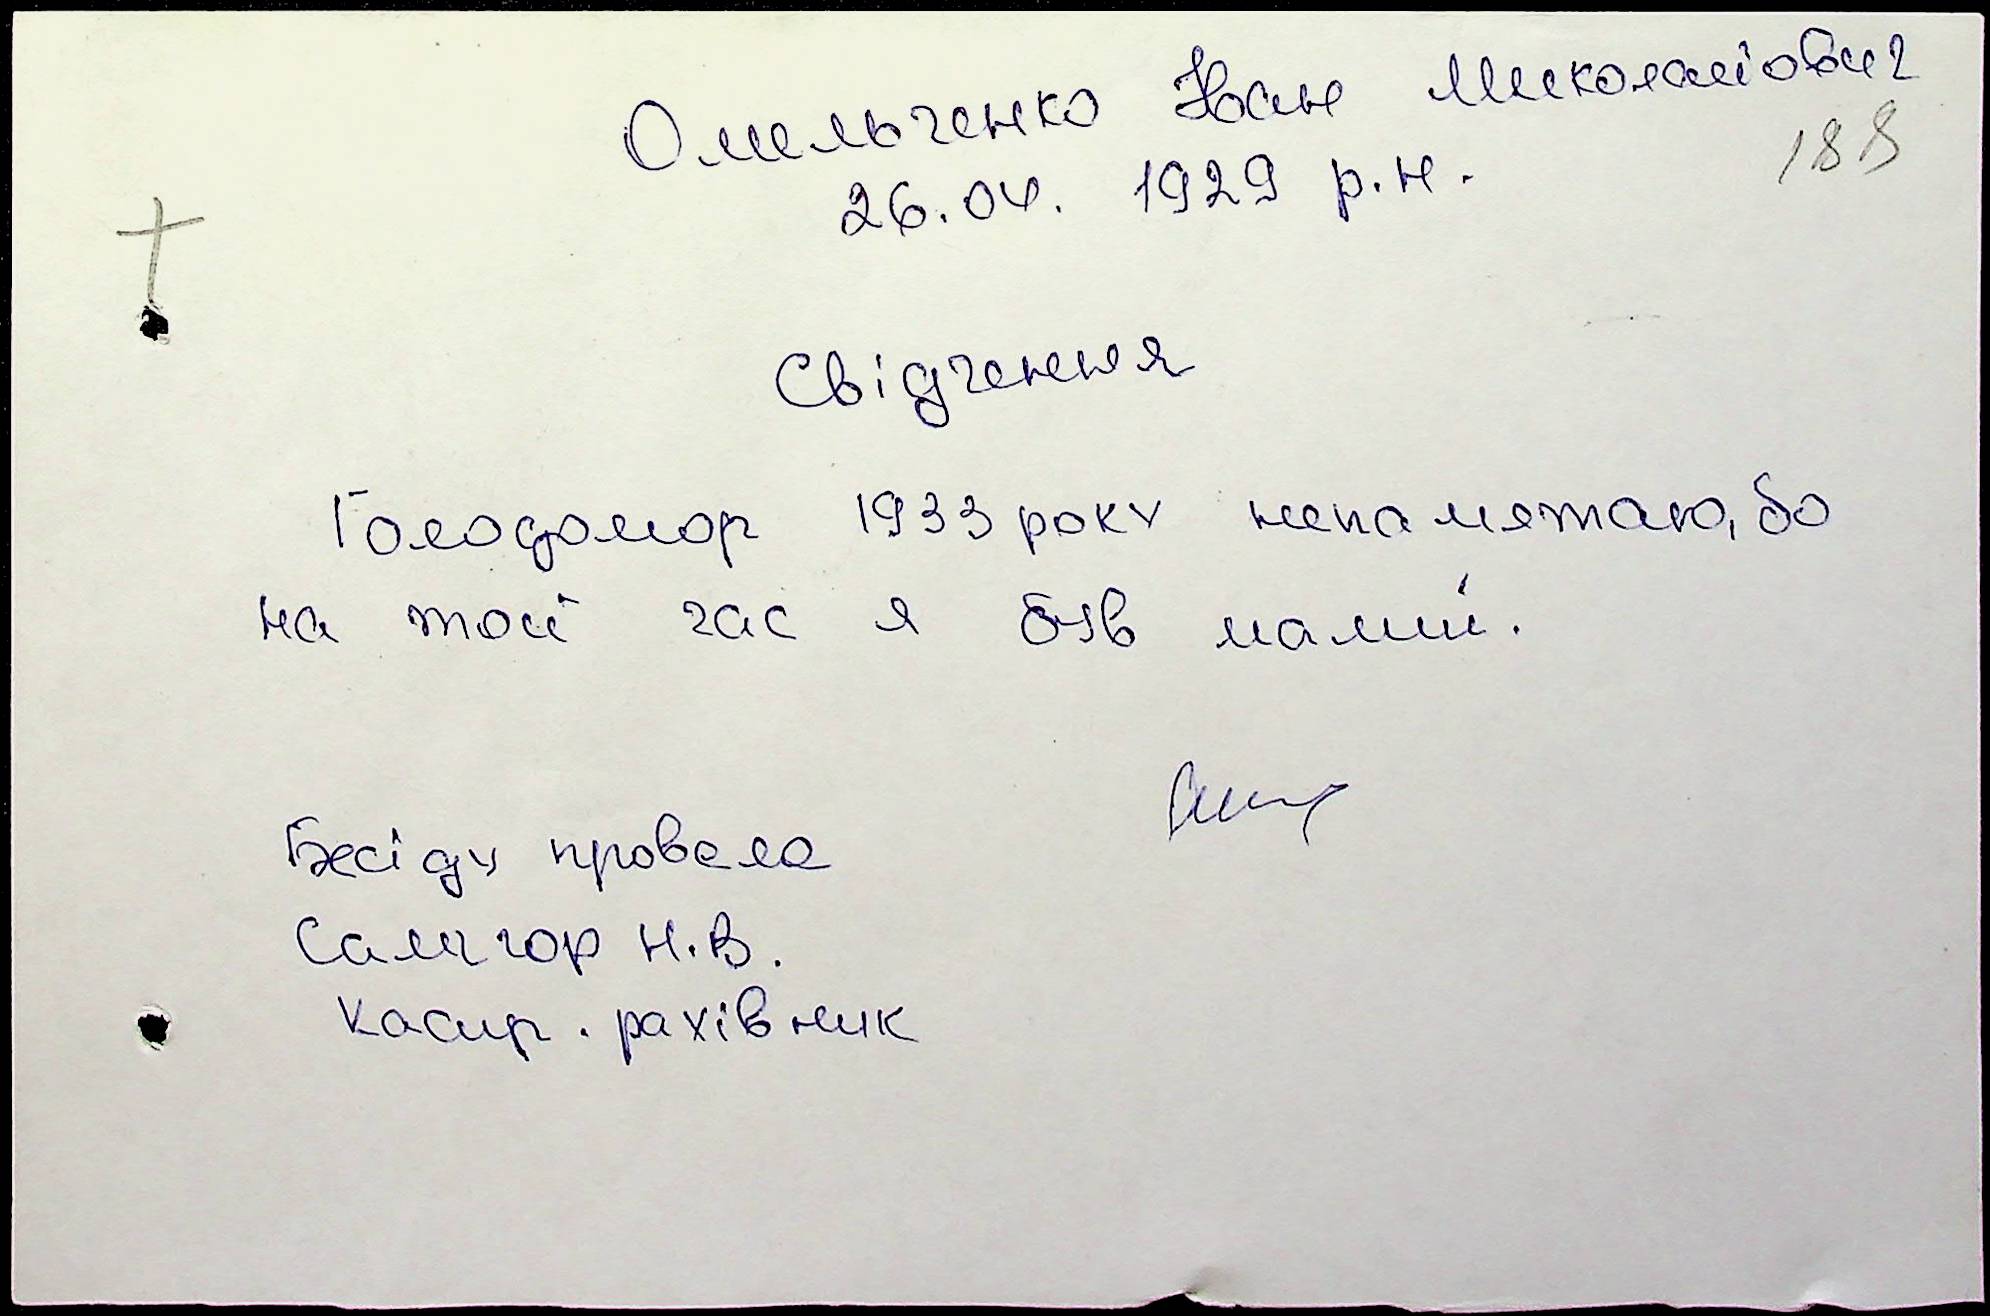 Омельченко Іван Миколайович
188
26.04. 1929 р.н.
Свідчення
Голодомор 1933 року непамятаю, бо
на той час я був малий.
Бесіду провела
Самігор Н.В.
Касир. рахівник